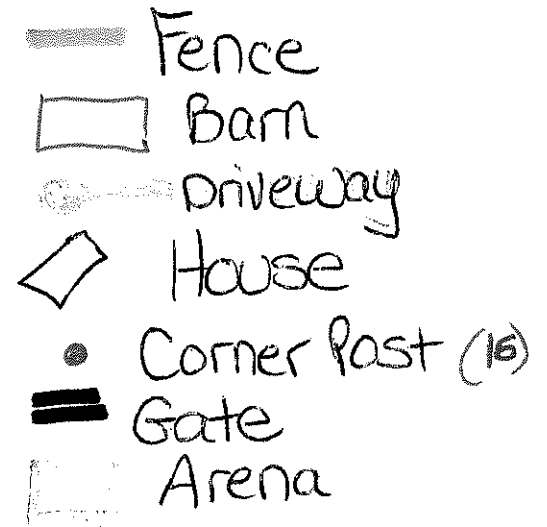 Fence
Barn
Driveway
House
Corner Post (15)
Gate
Arena